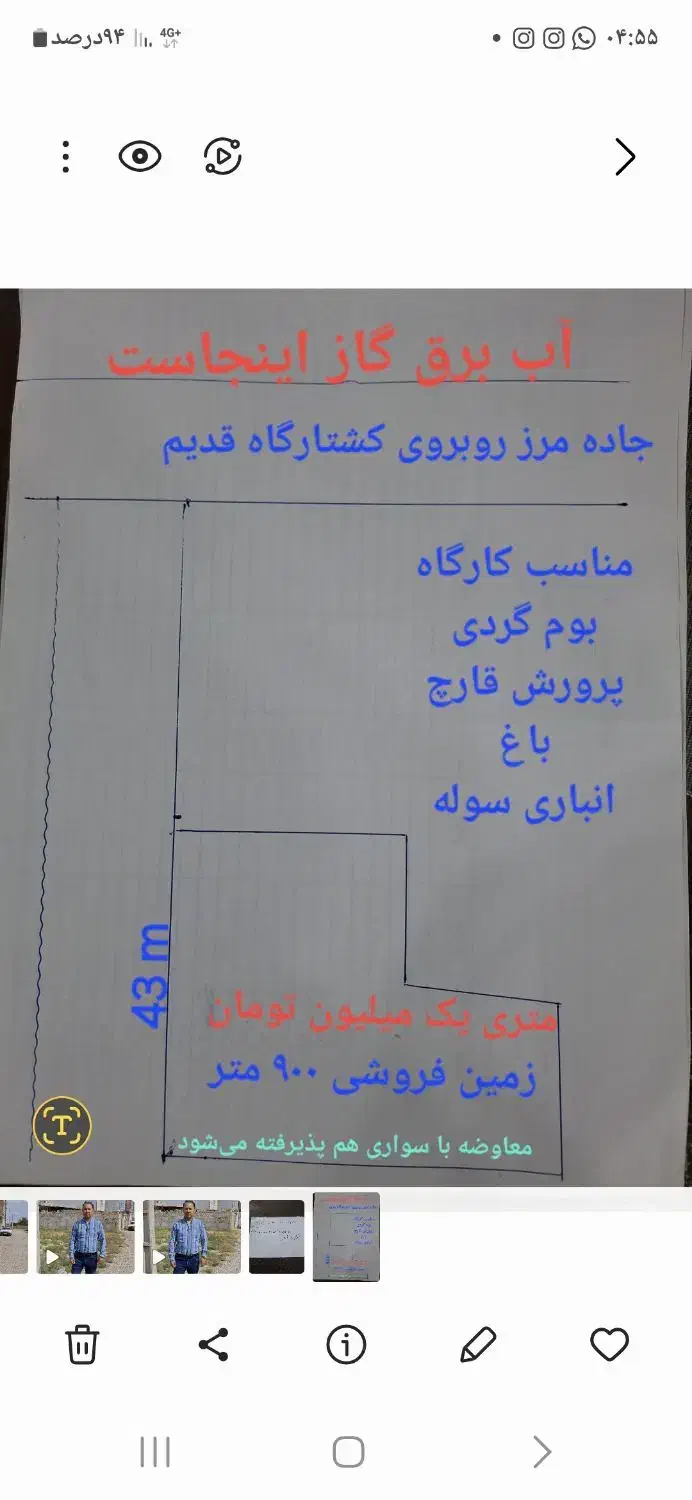 ۰۴:۵۵
4G+
۹۴درصد
آب برق گاز اینجاست
جاده مرز روبروی کشتارگاه قدیم
مناسب کارگاه
بوم گردی
پرورش قارچ
باغ
انباری سوله
43 m
متری یک میلیون تومان
زمین فروشی ۹۰۰ متر
معاوضه با سواری هم پذیرفته می‌شود
T